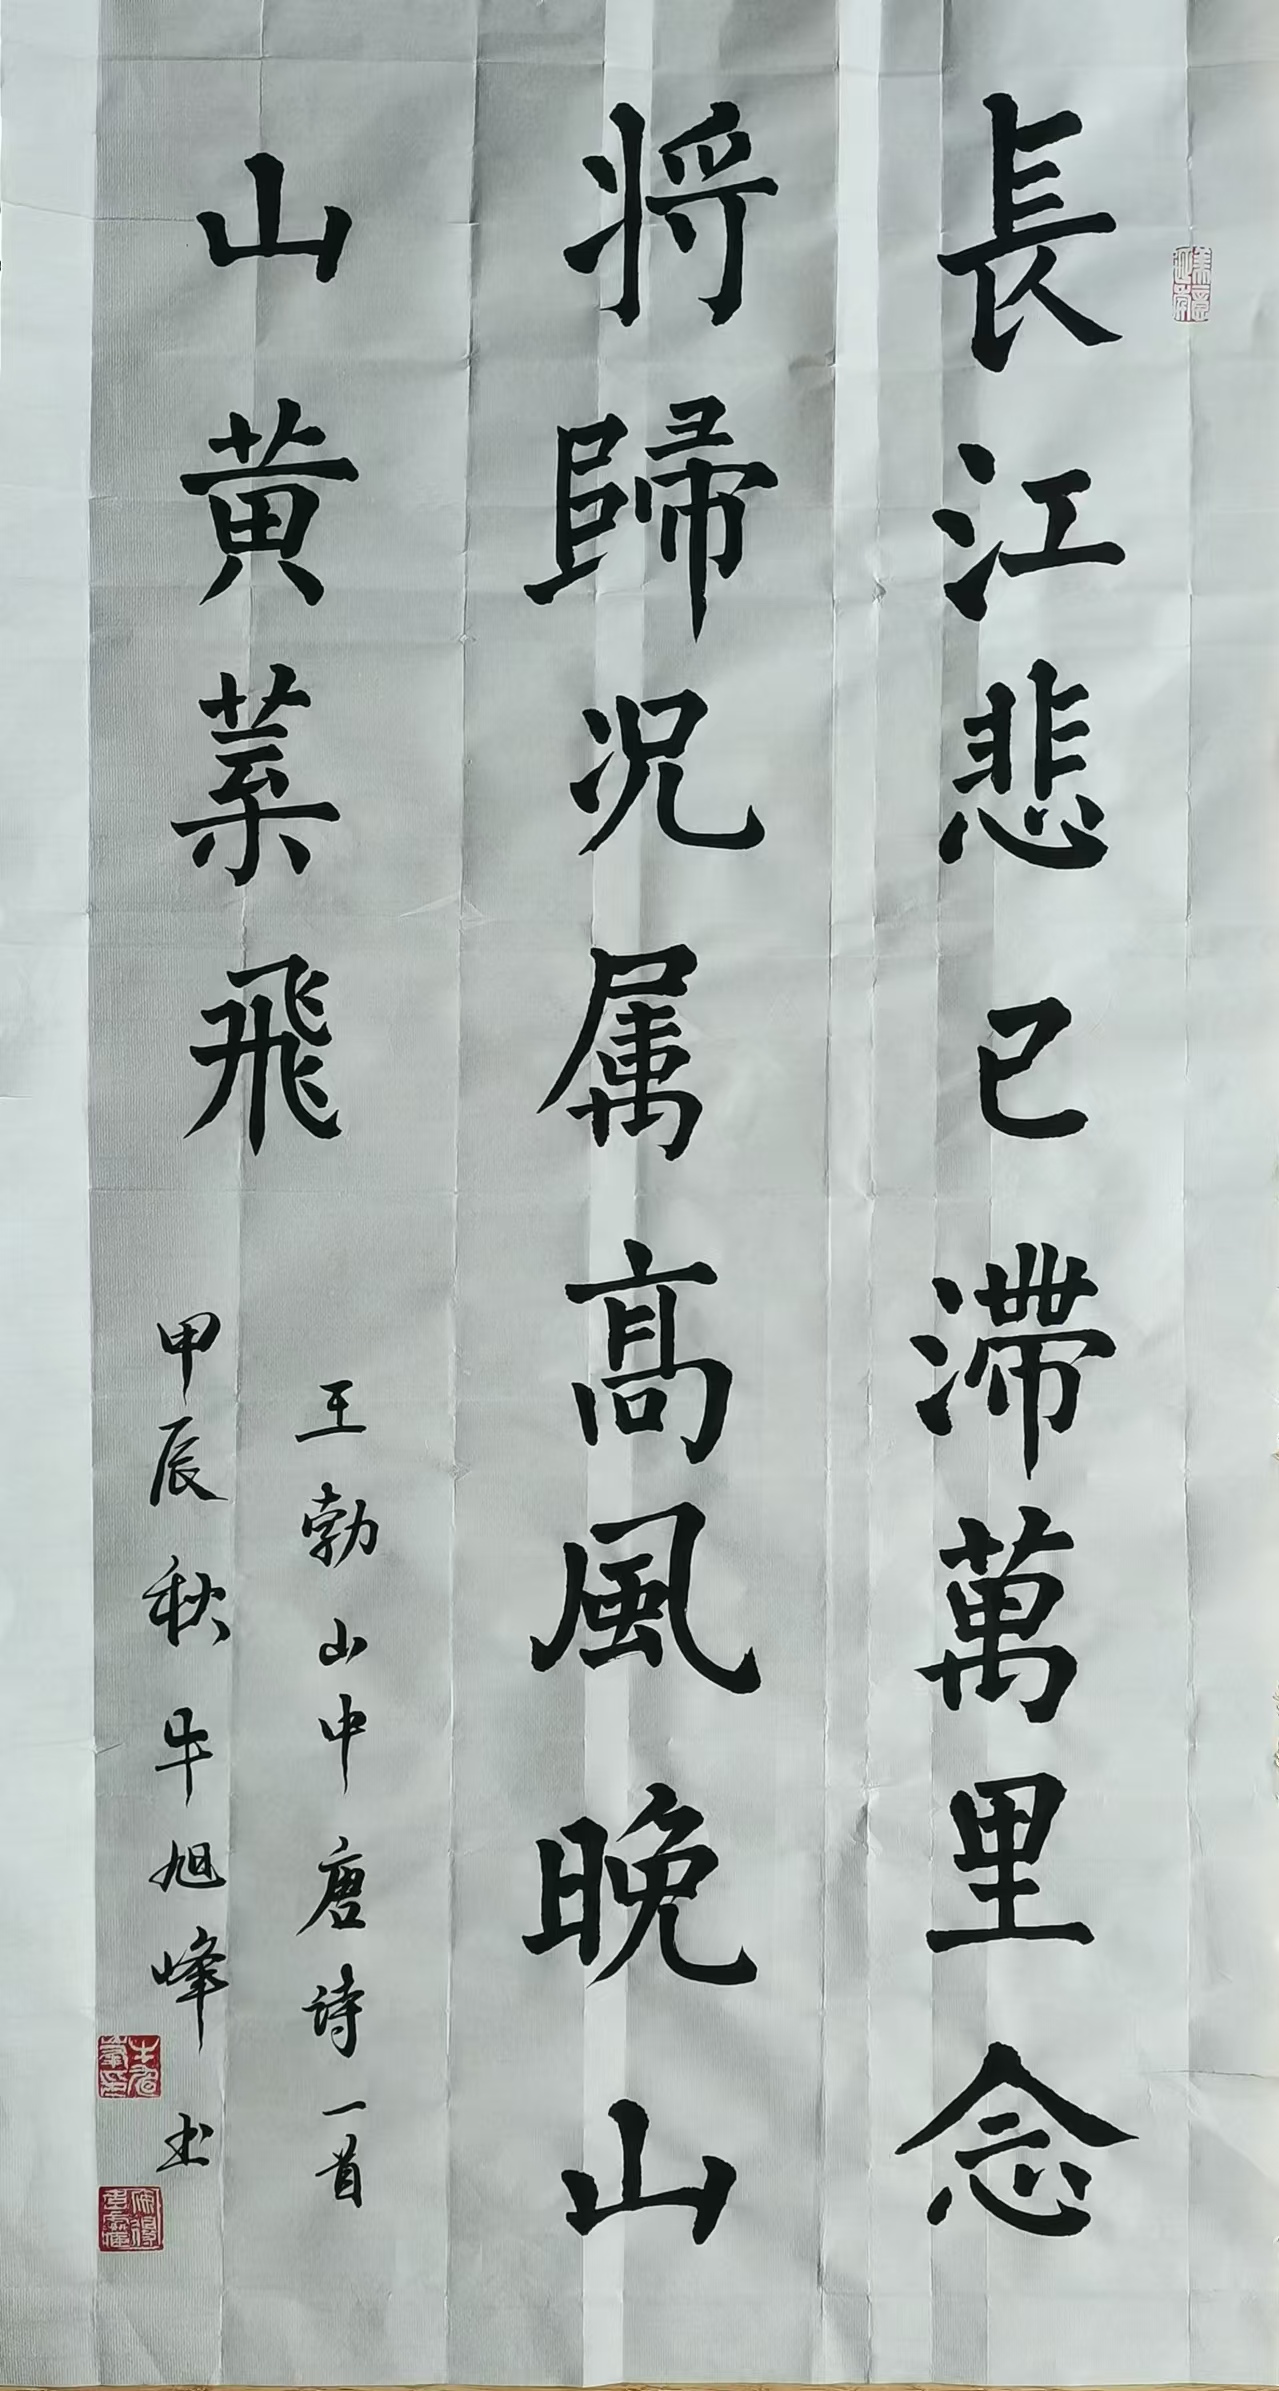 長江悲已滯萬里念
将歸况属高風晚山
山黄葉飛
王勃山中唐诗一首
甲辰秋牛旭峰书